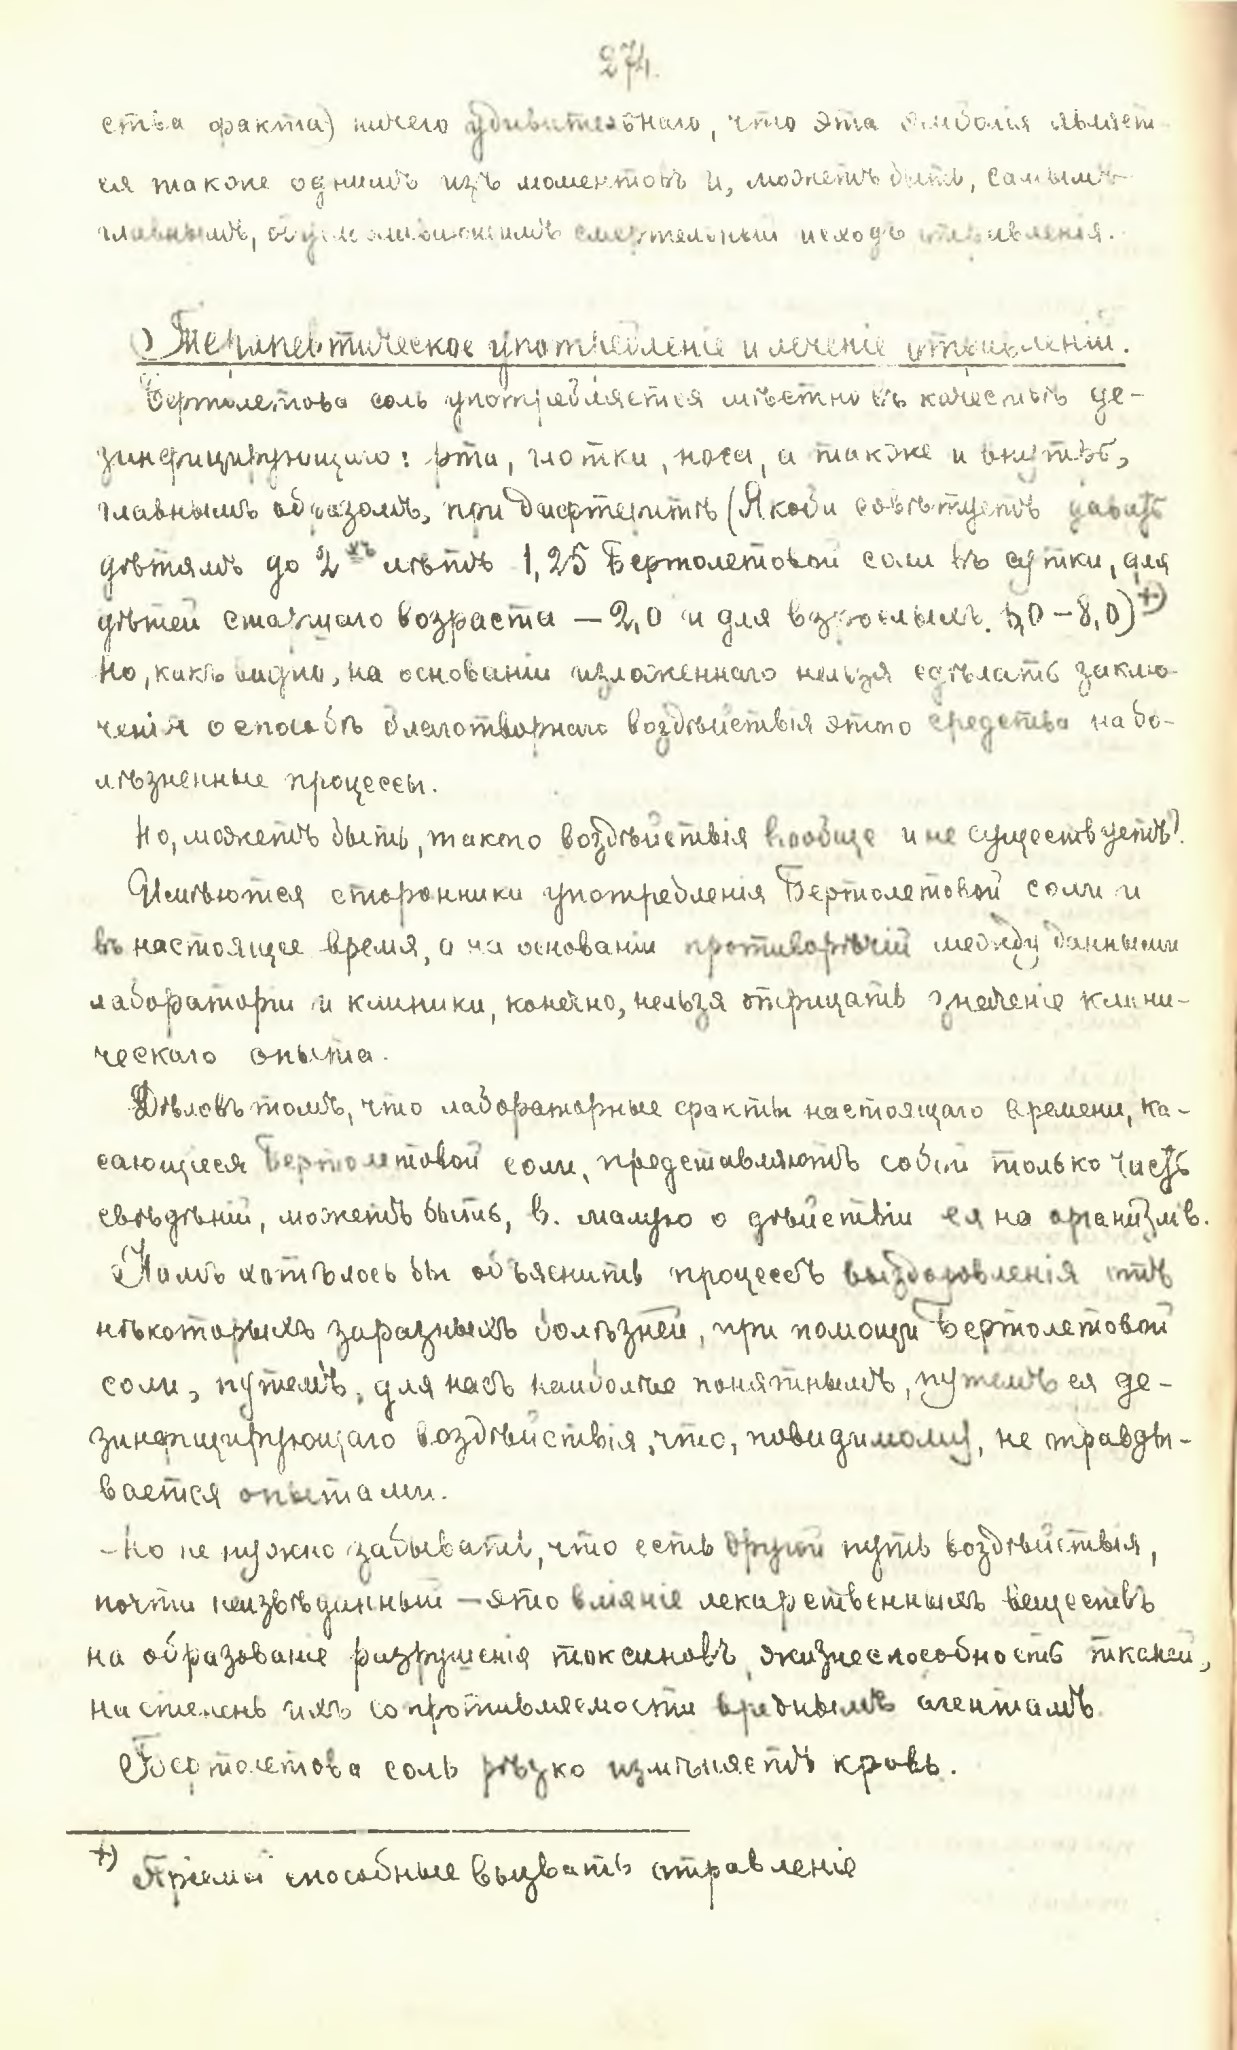 274.
ства факта) ничего удивительнаго, что эта эмболія являет-
ся также однимъ изъ моментовъ и, можетъ быть, самымъ
главнымъ, обусловливающимъ смертельный исходъ отравленія.
Терапевтическое употребленіе и леченіе отравленій.
Бертолетова соль употребляется мѣстно въ качествѣ де-
зинфицирующаго: рта, глотки, носа, а также и внутрь,
главнымъ образомъ, при дифтеритѣ (Якоби совѣтуетъ давать
дѣтямъ до 2хъ лѣтъ 1,25 Бертолетовой соли въ сутки, для
дѣтей старшаго возраста — 2,0 и для взрослыхъ 5,0 – 8,0)+)
Но, какъ видно, на основаніи изложеннаго нельзя сдѣлать заклю-
ченія о способѣ благотворнаго воздѣйствія этого средства на бо-
лѣзненные процессы.
Но, можетъ быть, такого воздѣйствія вообще и не существуетъ?
Имѣются сторонники употребленія Бертолетовой соли и
въ настоящее время, а на основаніи противорѣчій между данными
лабораторіи и клиники, конечно, нельзя отрицать значеніе клини-
ческаго опыта.
Дѣло въ томъ, что лабораторные факты настоящаго времени, ка-
сающіеся Бертолетовой соли, представляютъ собой только часть
свѣдѣній, можетъ быть, в. малую о дѣйствіи ея на организмъ.
Намъ хотѣлось бы объяснить процессъ выздоровленія отъ
нѣкоторыхъ заразныхъ болѣзней, при помощи Бертолетовой
соли, путемъ, для насъ наиболѣе понятнымъ, путемъ ея де-
зинфицирующаго воздѣйствія, что, повидимому, не оправды-
вается опытами.
– Но не нужно забывать, что есть другой путь воздѣйствія,
почти неизвѣданный — это вліяніе лекарственныхъ веществъ
на образованіе разрушенія токсиновъ, жизнеспособность тканей,
на степень ихъ сопротивляемости вреднымъ агентамъ.
Бертолетова соль рѣзко измѣняетъ кровь.
+) Пріемы способные вызвать отравленіе